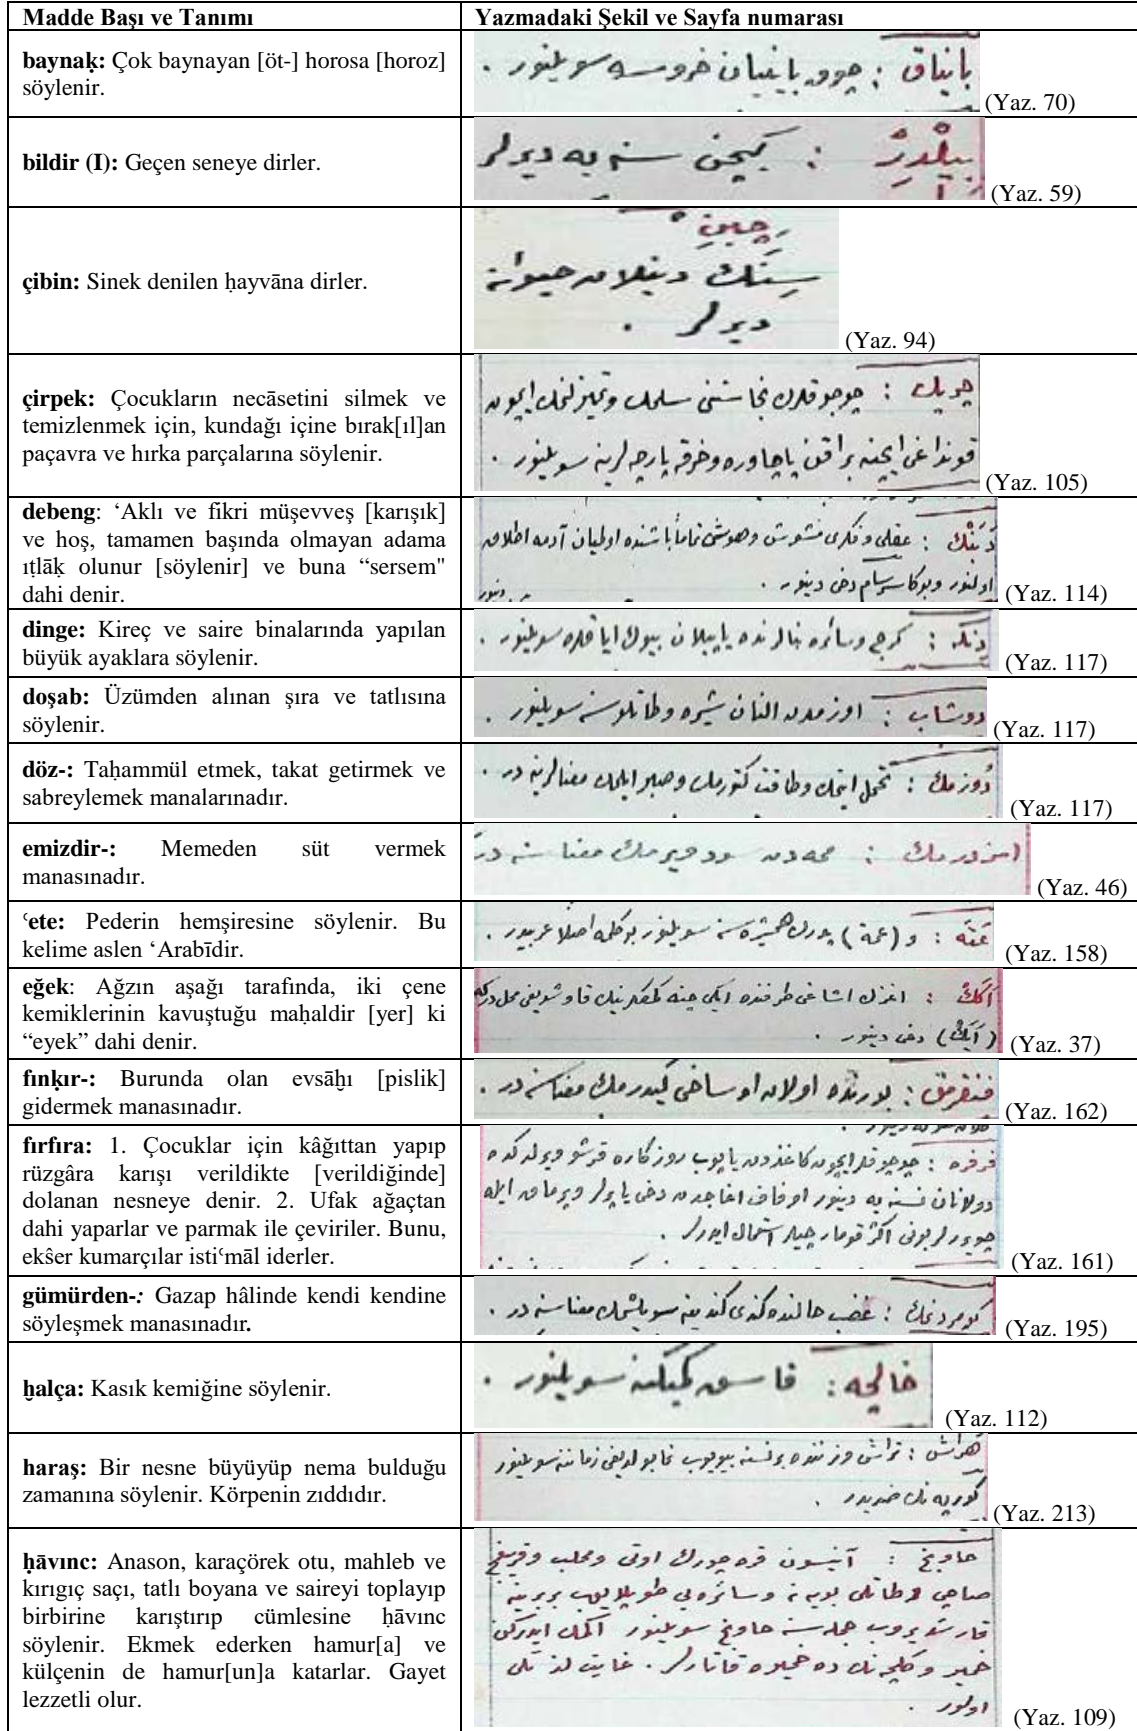 Madde Başı ve Tanımı
Yazmadaki Şekil ve Sayfa numarası
baynaḳ: Çok baynayan [öt-] horosa [horoz]
söylenir.
باینаق : چوق باینیان خروسه سویلنور .
(Yaz. 70)
bildir (I): Geçen seneye dirler.
بیلدر : کچن سنه یه دیرلر
(Yaz. 59)
çibin: Sinek denilen ḥayvāna dirler.
چبین
سینک دینلان حیوانه
دیرلر .
(Yaz. 94)
çirpek: Çocukların necāsetini silmek ve
temizlenmek için, kundağı içine bırak[ıl]an
paçavra ve hırka parçalarına söylenir.
چوجوقلرك نجاستنی سلمك وتمیزلنمك ایچون
قونداغی ایچنه براقن پاچاوره وخرقه پارچه لرینه سویلنور .
(Yaz. 105)
debeng: ‘Aklı ve fikri müşevveş [karışık]
ve hoş, tamamen başında olmayan adama
ıṭlāḳ olunur [söylenir] ve buna “sersem"
dahi denir.
دبنك : عقلی وفکری مشوش وهوشی تماماً باشنده اولمیان آدمه اطلاق
اولنور وبوکا سرسام دخی دینور .
(Yaz. 114)
dinge: Kireç ve saire binalarında yapılan
büyük ayaklara söylenir.
دنکه : کرج وسائره بنالرنده یاپیلان بیوك ایاقلره سویلنور .
(Yaz. 117)
doşab: Üzümden alınan şıra ve tatlısına
söylenir.
دوشاب : اوزمدن النان شیره وطاتلوسنه سویلنور .
(Yaz. 117)
döz-: Taḥammül etmek, takat getirmek ve
sabreylemek manalarınadır.
دوزمك : تحمل ایتمك وطاقت کتورمك وصبر ایلمك معنالرینه در .
(Yaz. 117)
emizdir-: Memeden süt vermek
manasınadır.
امزدرمك : ممه دن سود ویرمك معناسنه در
(Yaz. 46)
ʿete: Pederin hemşiresine söylenir. Bu
kelime aslen ‘Arabīdir.
عته : و (عمة) پدرك همشیره سنه سویلنور بوکلمه اصلا عربیدر .
(Yaz. 158)
eğek: Ağzın aşağı tarafında, iki çene
kemiklerinin kavuştuğu maḥaldir [yer] ki
“eyek” dahi denir.
اکك : اغزك اشاغی طرفنده ایکی چنه کمکلرینك قاوشدیغی محلدرکه
(ایك) دخی دینور .
(Yaz. 37)
fınḳır-: Burunda olan evsāḫı [pislik]
gidermek manasınadır.
فنقرمق : بورنده اولان اوساخی کیدرمك معناسنه در .
(Yaz. 162)
fırfira: 1. Çocuklar için kâğıttan yapıp
rüzgâra karışı verildikte [verildiğinde]
dolanan nesneye denir. 2. Ufak ağaçtan
dahi yaparlar ve parmak ile çeviriler. Bunu,
ekŝer kumarçılar istiʿmāl iderler.
فرفره : چوجوقلر ایچون کاغددن یاپوب روزکاره قرشو ویرلدکده
دولانان نسنه یه دینور اوفاق اغاجدن دخی یاپرلر وپرماق ایله
چویررلر بونی اکثر قومارجیلر استعمال ایدرلر
(Yaz. 161)
gümürden-: Gazap hâlinde kendi kendine
söyleşmek manasınadır.
کومردنمك : غضب حالنده کندی کندینه سویلشمك معناسنه در .
(Yaz. 195)
ḫalça: Kasık kemiğine söylenir.
خالچه : قاسق کمیکنه سویلنور .
(Yaz. 112)
haraş: Bir nesne büyüyüp nema bulduğu
zamanına söylenir. Körpenin zıddıdır.
هراش : تراش وزننده برنسنه بیویوب نما بولدیغی زماننه سویلنور
کورپه نك ضدیدر .
(Yaz. 213)
ḥāvınc: Anason, karaçörek otu, mahleb ve
kırıgıç saçı, tatlı boyana ve saireyi toplayıp
birbirine karıştırıp cümlesine ḥāvınc
söylenir. Ekmek ederken hamur[a] ve
külçenin de hamur[un]a katarlar. Gayet
lezzetli olur.
حاونج : آنیسون قره چورك اوتی ومحلب وقریغج
صاچی وطاتلی بویه نه وسائره یی طوپلایوب بربرینه
قارشدیروب جمله سنه حاونج سویلنور اکمك ایدرکن
خمیر وکلیچه نك ده خمیره قاتارلر . غایت لذتلی
اولور .
(Yaz. 109)